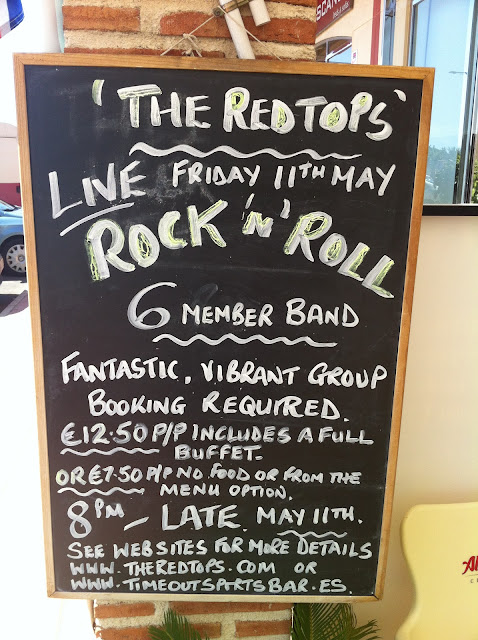 'THE REDTOPS'
LIVE FRIDAY 11TH MAY
ROCK 'N' ROLL
6 MEMBER BAND
FANTASTIC, VIBRANT GROUP
BOOKING REQUIRED.
€12.50 P/P INCLUDES A FULL
BUFFET.
OR €7.50 P/P NO FOOD OR FROM THE
MENU OPTION.
8PM – LATE. MAY 11TH.
SEE WEBSITES FOR MORE DETAILS
WWW.THEREDTOPS.COM OR
WWW.TIMEOUTSPARTSBAR.ES.